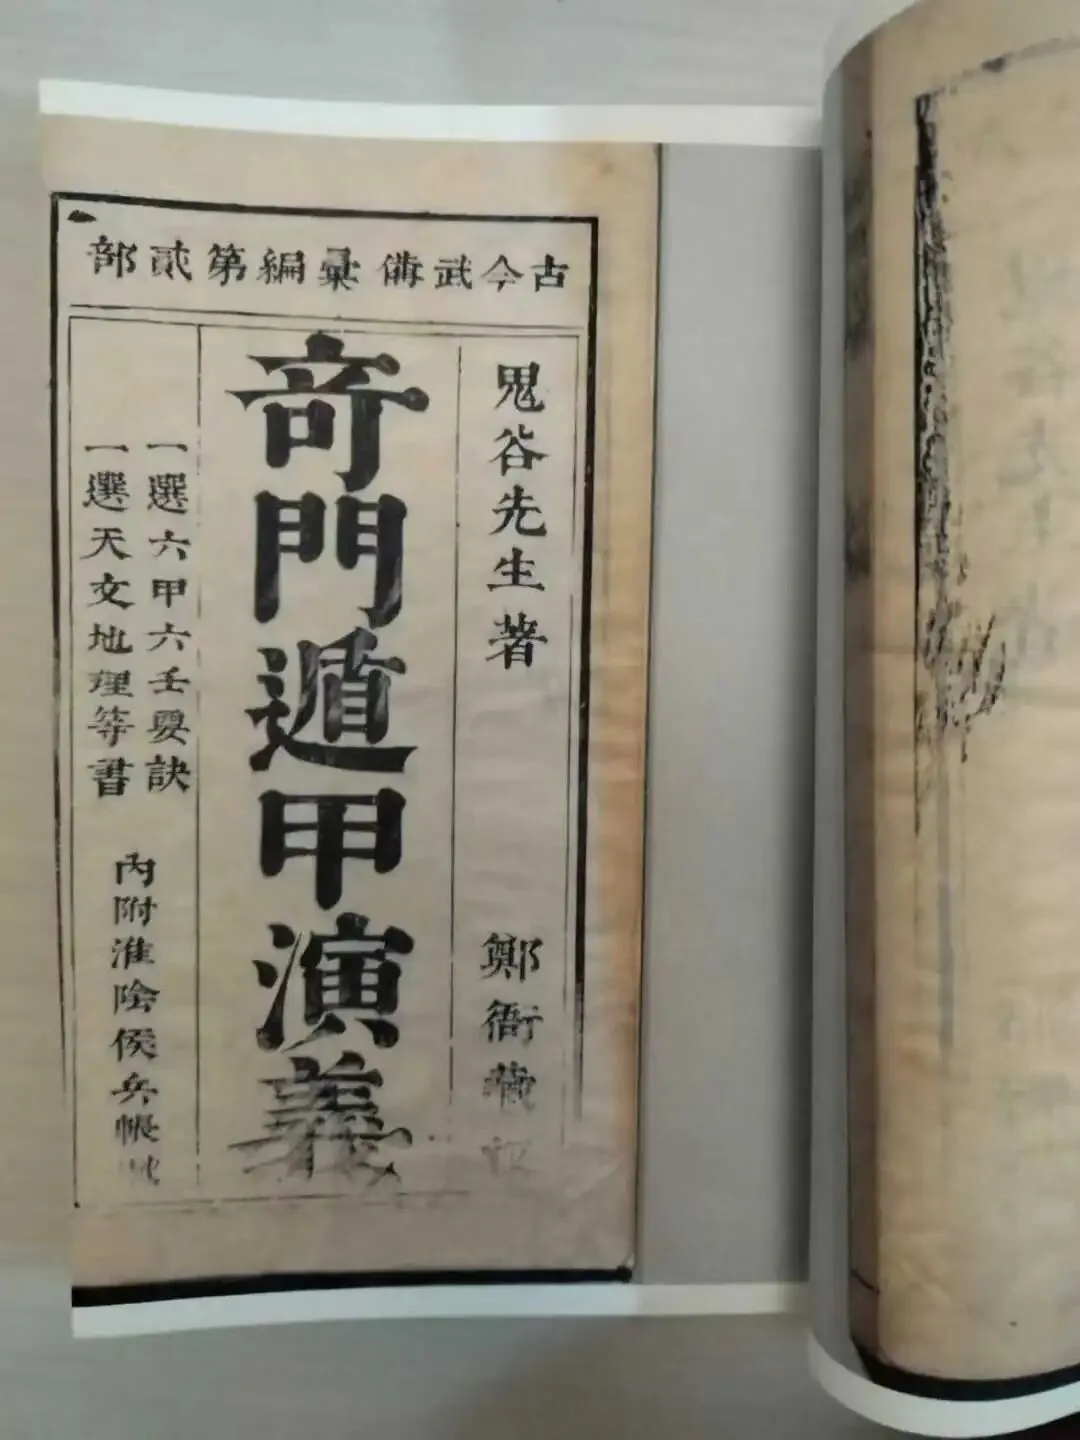 古今武備彙編第貳部
鬼谷先生著
鄭衙藏
奇門遁甲演義
一選六甲六壬要訣
一選天文地理等書
內附淮陰侯兵帳